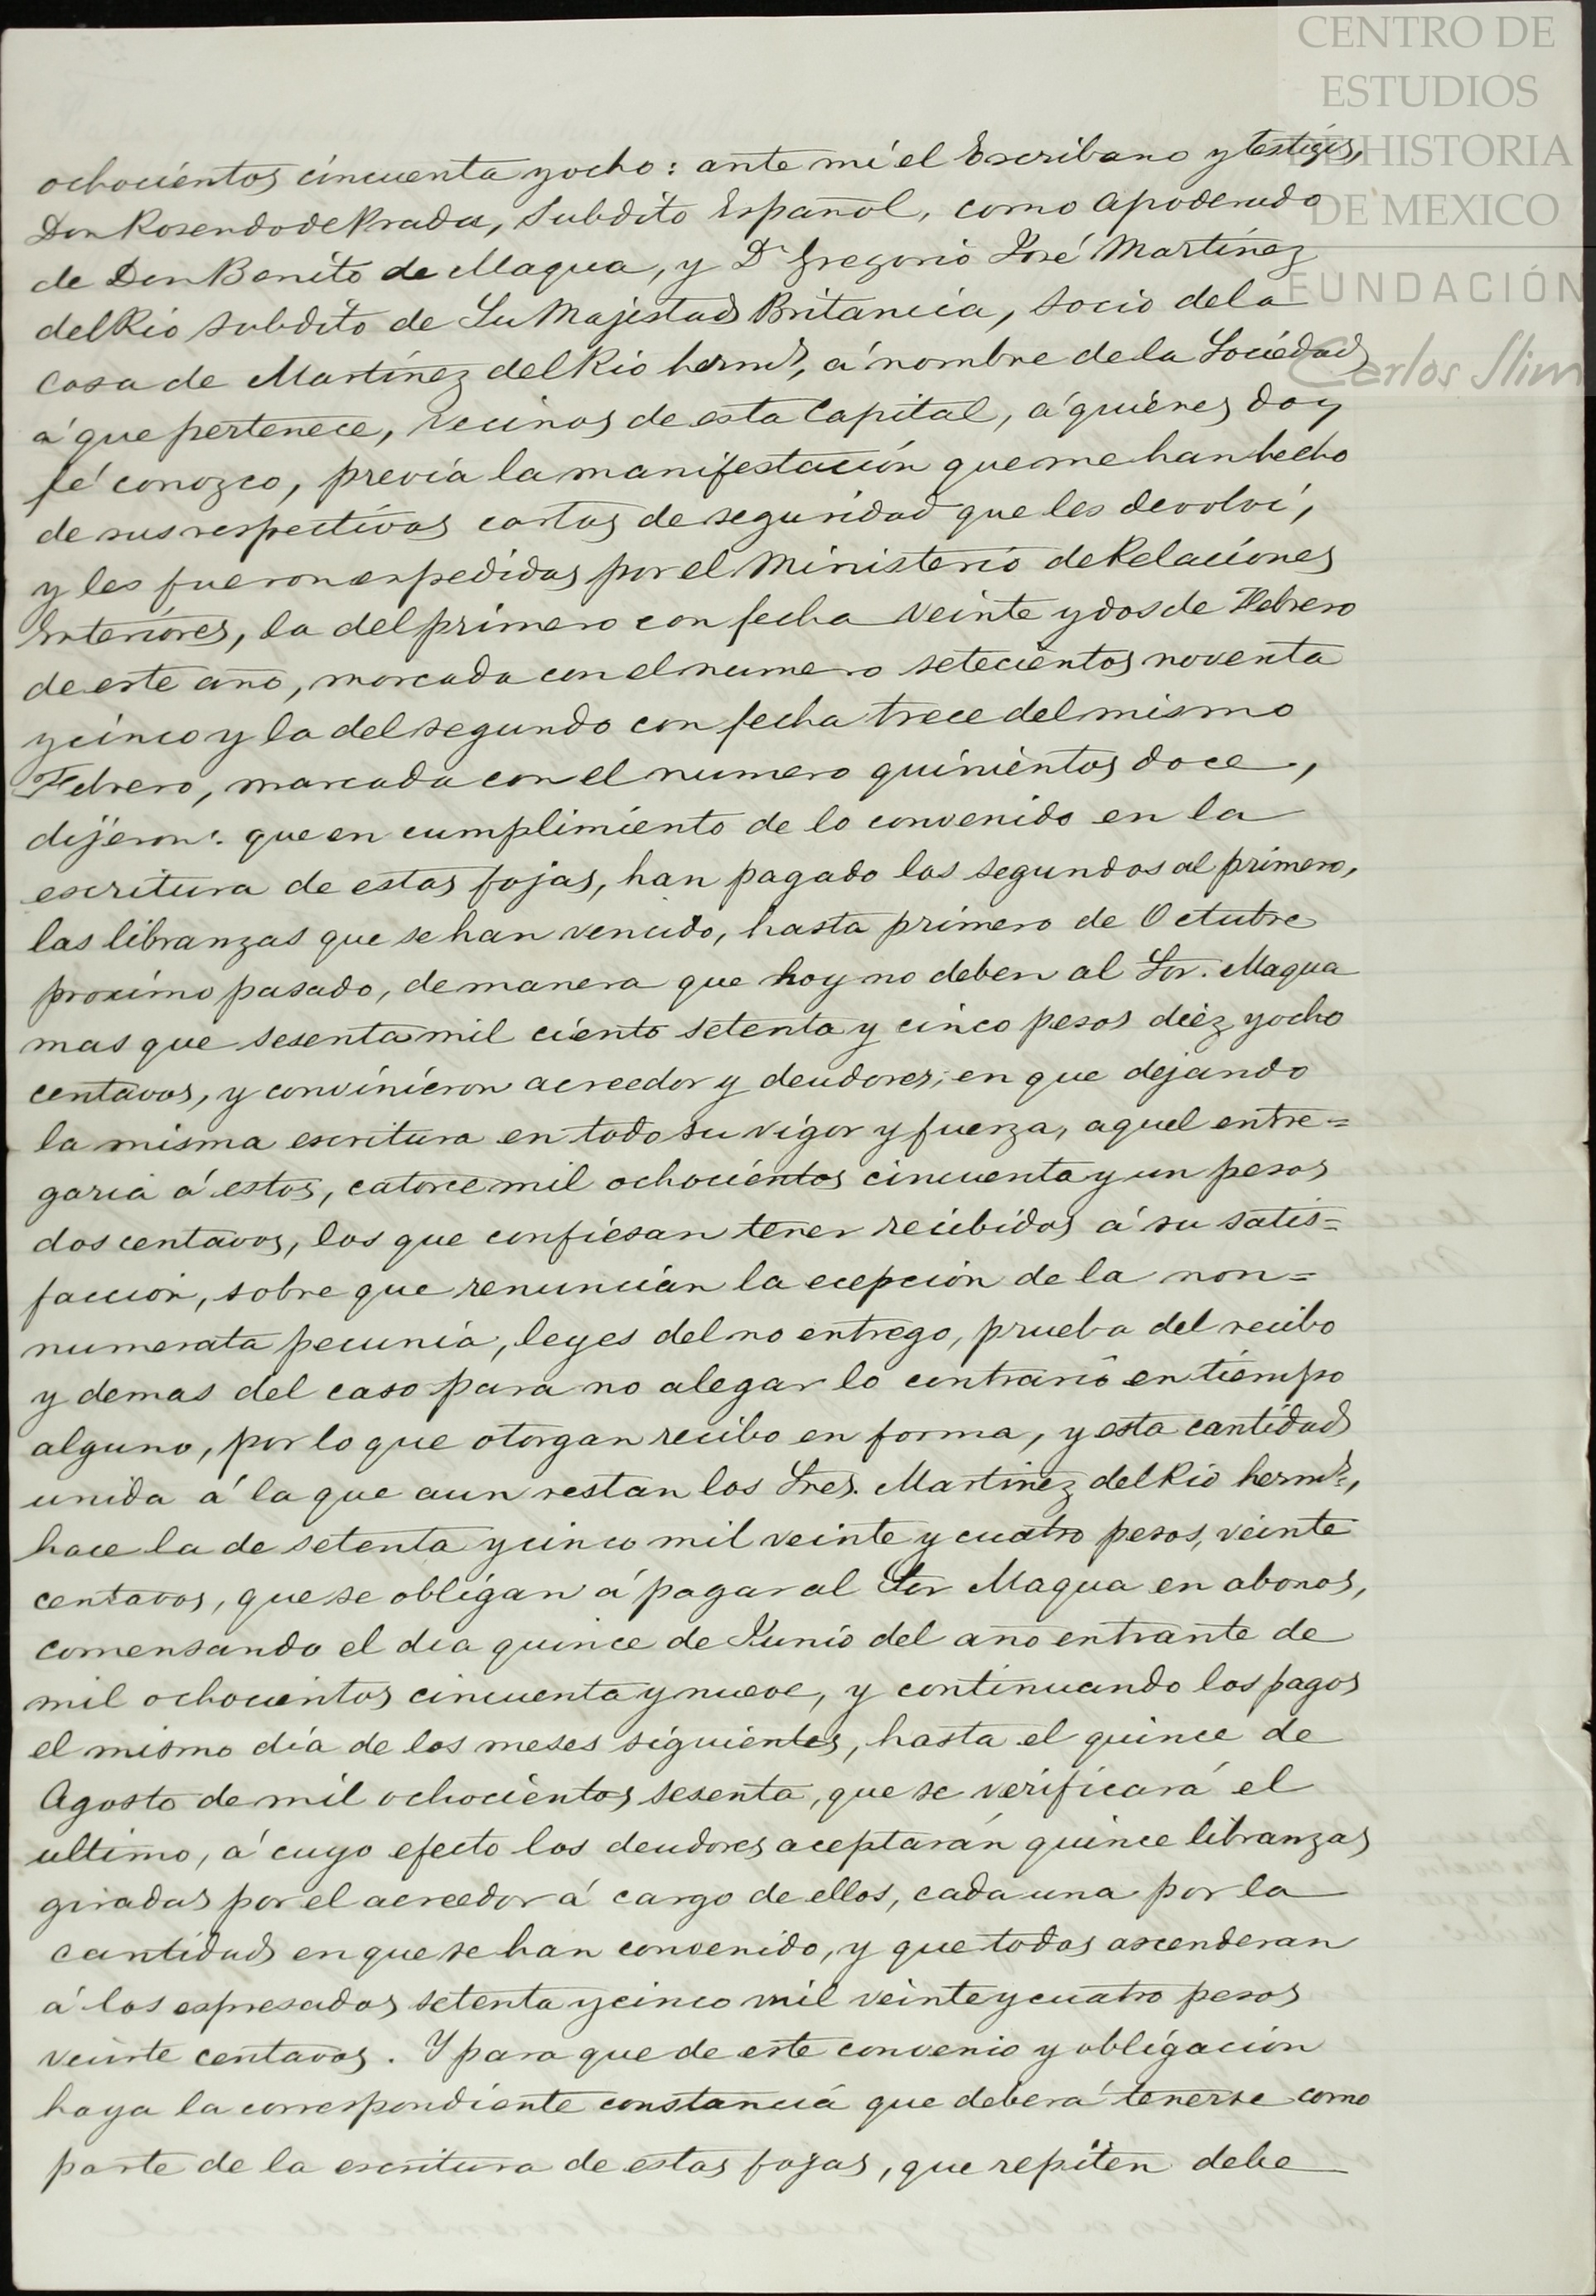 CENTRO DE
ESTUDIOS
HISTORIA
DE MEXICO
FUNDACIÓN
Carlos Slim
ochocientos cincuenta y ocho: ante mi el Escribano y testigos,
Don Rosendo de Prada, Subdito Español, como apoderado
de Don Benito de Maqua, y Dn Gregorio José Martinez
del Rio subdito de Su Majestad Britanica, socio de la
casa de Martinez del Rio herms, á nombre de la Sociedad
á que pertenece, vecinos de esta Capital, á quienes doy
fé conozco, previa la manifestación que me han hecho
de sus respectivas cartas de seguridad que les devolví,
y les fueron espedidas por el Ministerio de Relaciones
Interiores, la del primero con fecha veinte y dos de Febrero
de este año, marcada con el numero setecientos noventa
y cinco y la del segundo con fecha trece del mismo
Febrero, marcada con el numero quinientos doce,
dijeron: que en cumplimiento de lo convenido en la
escritura de estas fojas, han pagado los segundos al primero,
las libranzas que se han vencido, hasta primero de Octubre
proximo pasado, de manera que hoy no deben al Sor. Maqua
mas que sesenta mil ciento setenta y cinco pesos diez y ocho
centavos, y convinieron acreedor y deudores, en que dejando
la misma escritura en todo su vigor y fuerza, aquel entre=
garia á estos, catorce mil ochocientos cincuenta y un pesos
dos centavos, los que confiesan tener recibidos á su satis=
faccion, sobre que renuncian la ecepción de la non=
numerata pecunia, leyes del no entrego, prueba del recibo
y demas del caso para no alegar lo contrario en tiempo
alguno, por lo que otorgan recibo en forma, y esta cantidad
unida á la que aun restan los Sres. Martinez del Rio herms,
hace la de setenta y cinco mil veinte y cuatro pesos, veinte
centavos, que se obligan á pagar al Sor Maqua en abonos,
comensando el dia quince de Junio del año entrante de
mil ochocientos cincuenta y nueve, y continuando los pagos
el mismo día de los meses siguientes, hasta el quince de
Agosto de mil ochocientos sesenta, que se verificará el
ultimo, á cuyo efecto los deudores aceptarán quince libranzas
giradas por el acreedor á cargo de ellos, cada una por la
cantidad en que se han convenido, y que todas ascenderan
á los espresados setenta y cinco mil veinte y cuatro pesos
veinte centavos. Y para que de este convenio y obligación
haya la correspondiente constancia que deberá tenerse como
parte de la escritura de estas fojas, que repiten debe